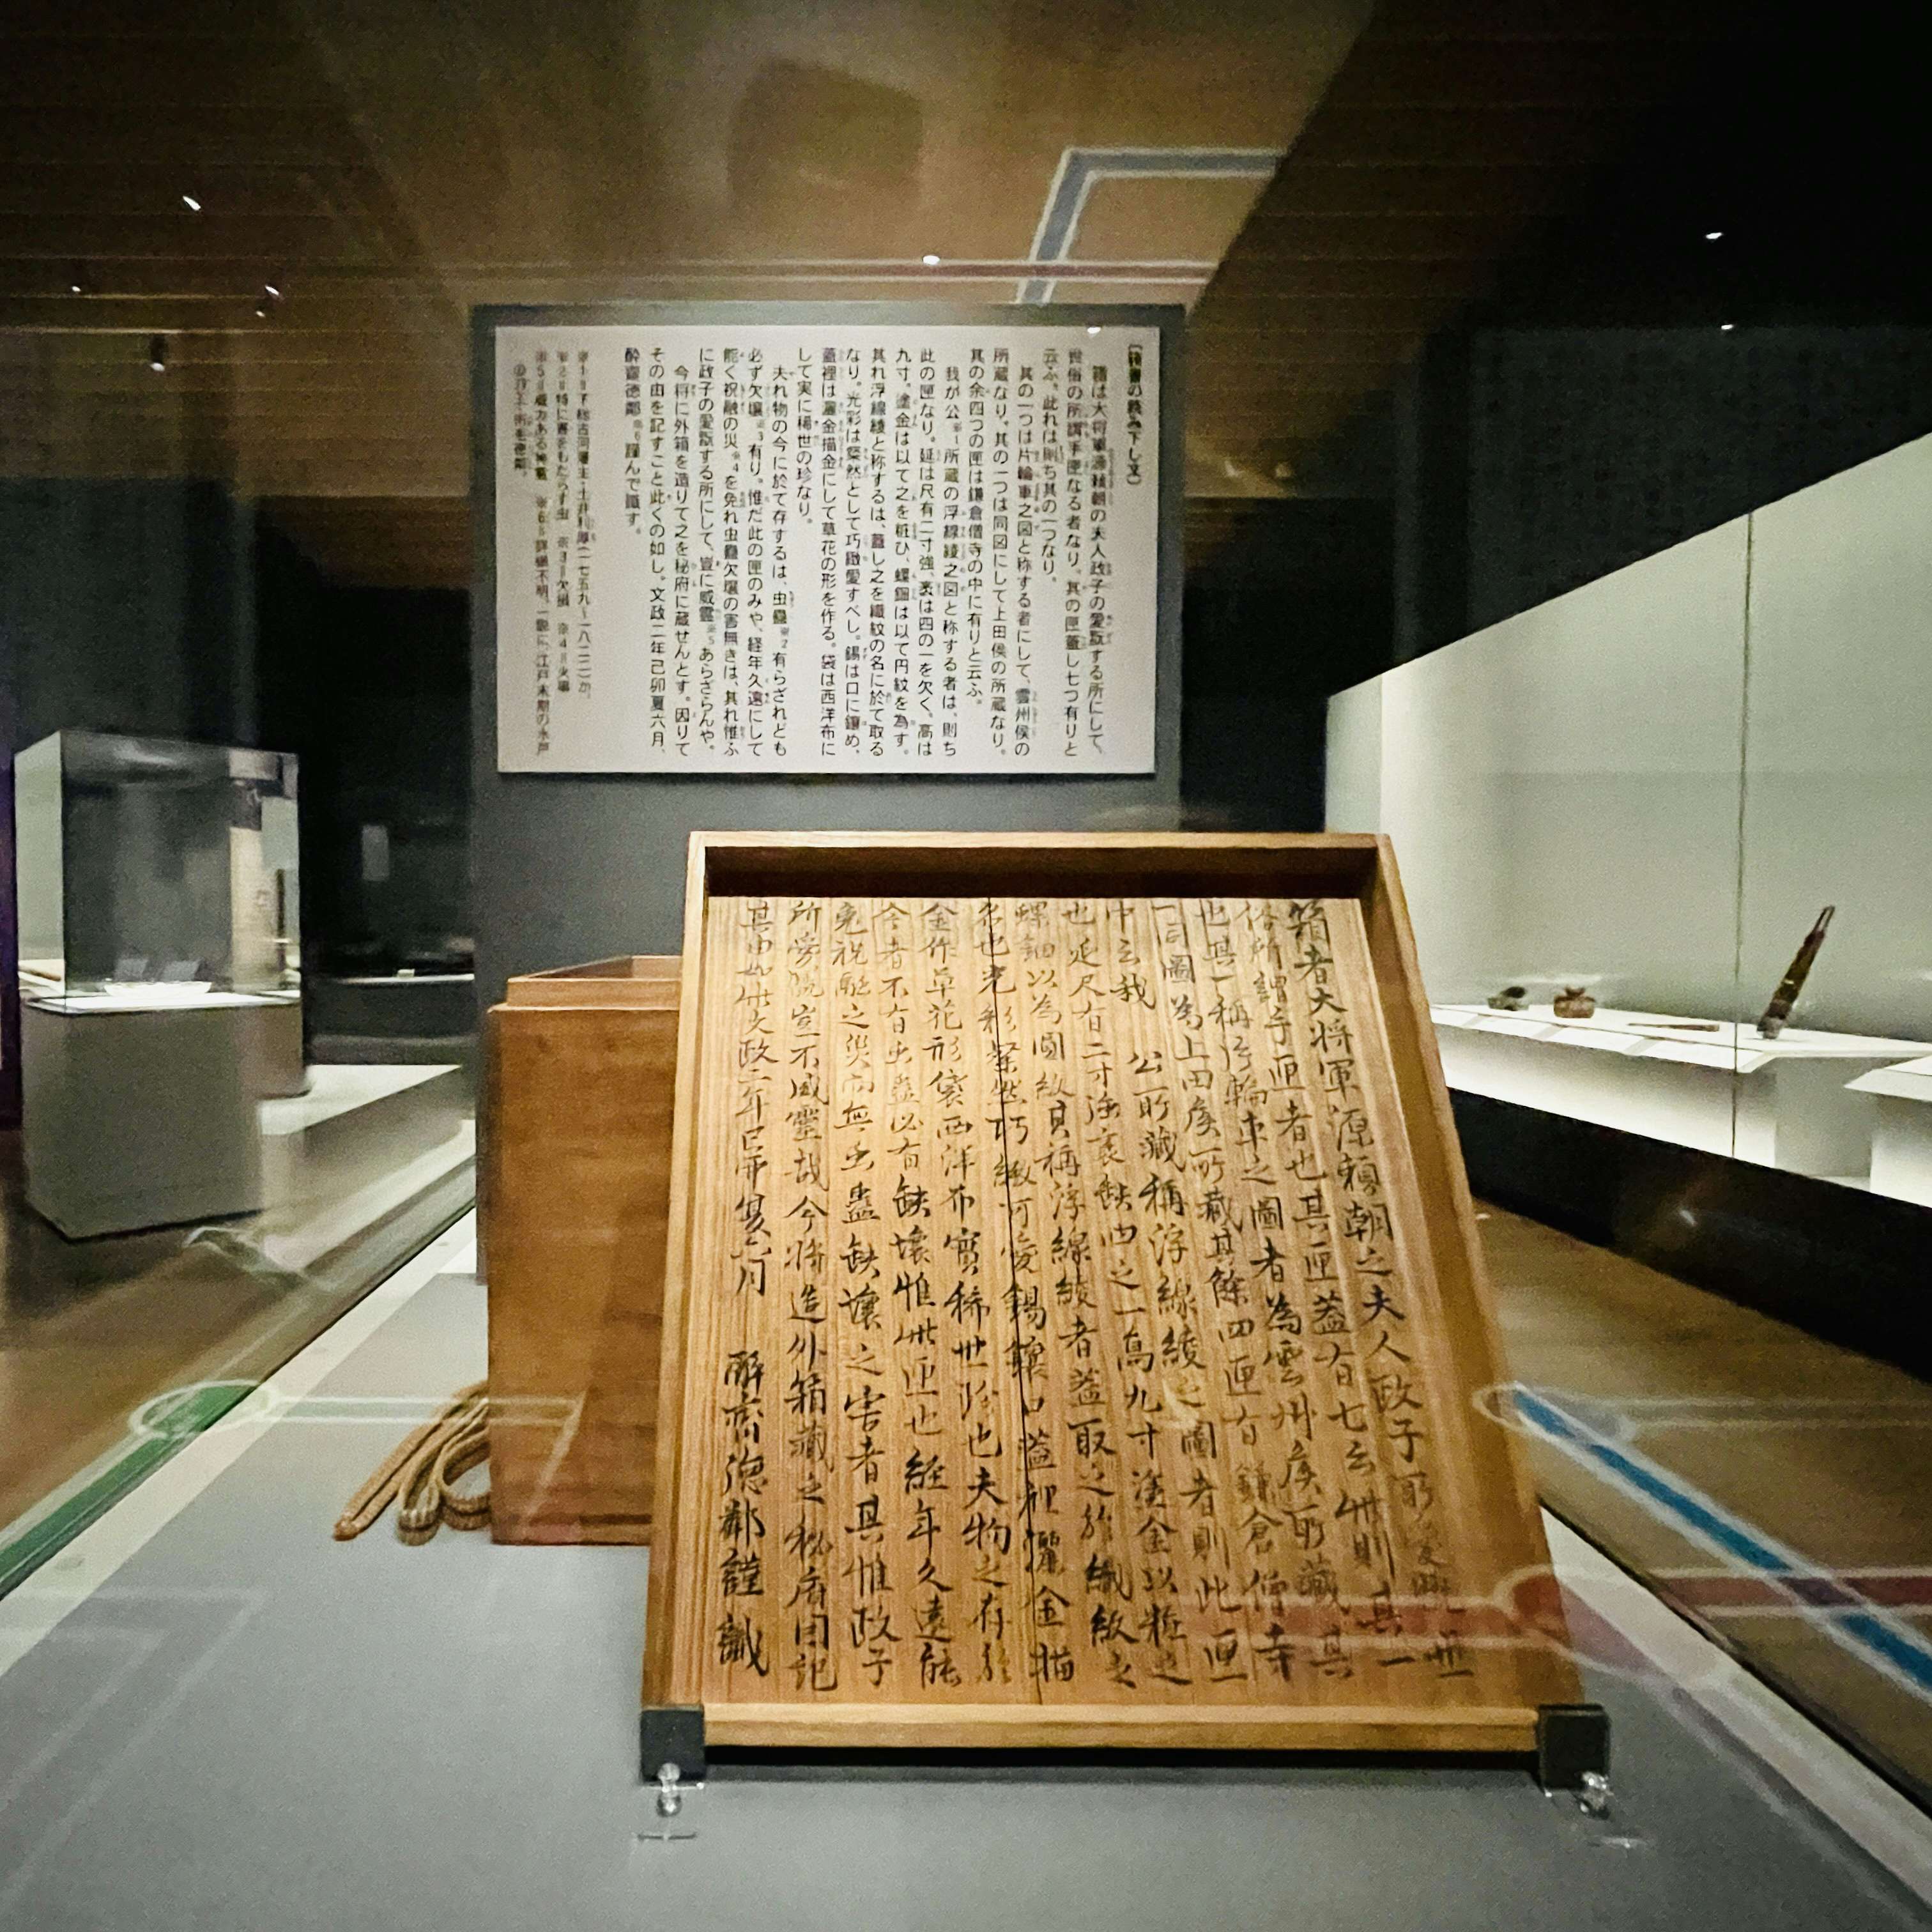 〔箱書の読み下し文〕
箱は大将軍源頼朝の夫人政子の愛翫する所にして、
世俗の所謂手匣なる者なり。其の匣蓋し七つ有りと
云ふ。此れは則ち其の一つなり。
其の一つは片輪車之図と称する者にして、雲州侯の
所蔵なり。其の一つは同図にして上田侯の所蔵なり。
其の余四つの匣は鎌倉僧寺の中に有りと云ふ。
我が公※1所蔵の浮線綾之図と称する者は、則ち
此の匣なり。延は尺有二寸強、袤は四の一を欠く。高は
九寸。塗金は以て之を粧ひ、螺鈿は以て円紋を為す。
其れ浮線綾と称するは、蓋し之を織紋の名に於て取る
なり。光彩は粲然として巧緻愛すべし。錫は口に鑲め、
蓋裡は灑金描金にして草花の形を作る。袋は西洋布に
して実に稀世の珍なり。
夫れ物の今に於て存するは、虫蠱※2有らざれども
必ず欠壊※3有り。惟だ此の匣のみや、経年久遠にして
能く祝融の災※4を免れ虫蠱欠壊の害無きは、其れ惟ふ
に政子の愛翫する所にして、豈に威霊※5あらざらんや。
今将に外箱を造りて之を秘府に蔵せんとす。因りて
その由を記すこと此くの如し。文政二年己卯夏六月、
酔斎徳鄰※6謹んで識す。
※1＝下総古河藩主・土井利厚（一七五九～一八二二）か。
※2＝特に害をもたらす虫　※3＝欠損　※4＝火事
※5＝威力ある神霊　※6＝詳細不明。一説に、江戸末期の水戸
箱者大将軍源頼朝之夫人政子所愛翫世
俗所謂手匣者也其匣蓋有七云此則其一
也其一稱片輪車之圖者為雲州侯所藏其
一同圖為上田侯所藏其餘四匣有鎌倉僧寺
中云我 公所藏稱浮線綾之圖者則此匣
也延尺有二寸強袤缺四之一高九寸塗金以粧之
螺鈿以為圓紋其稱浮線綾者蓋取之於織紋之
名也光彩粲然巧緻可愛錫鑲口蓋裡灑金描
金作草花形袋西洋布實稀世珍也夫物之存於
今者不有虫蠱必有缺壞惟此匣也經年久遠能
免祝融之災而無虫蠱缺壞之害者其惟政子
所愛翫豈不威靈哉今將造外箱藏之秘府因記
其由如此文政二年己卯夏六月 酔斎徳鄰謹識